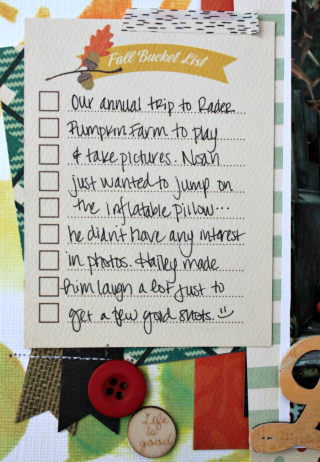 Fall Bucket List
Our annual trip to Rader
Pumpkin Farm to play
& take pictures. Noah
just wanted to jump on
the inflatable pillow...
he didn't have any interest
in photos. Hailey made
him laugh a lot just to
get a few good shots. :)
Life is good